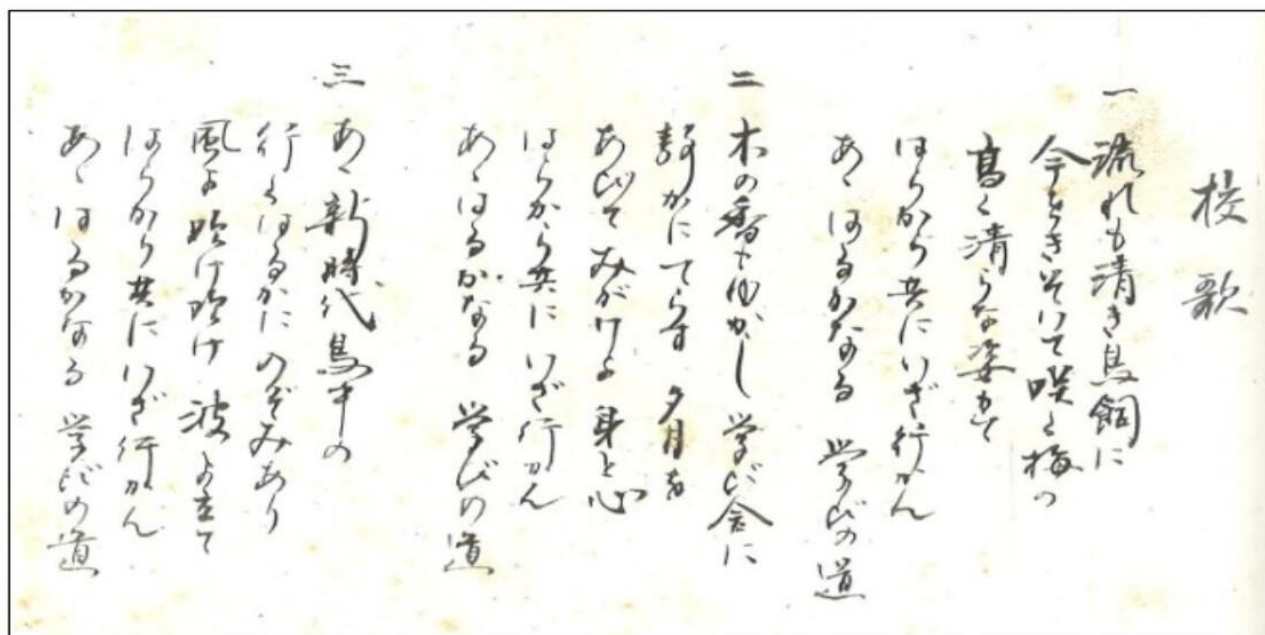 校歌
一 流れも清き鳥飼に
今をきそいて咲く梅の
高く清らな姿もて
はらから共にいざ行かん
あゝはるかなる 学びの道
二 木の香もゆかし学び舎に
静かにてらす 夕月を
あびてみがけよ 身と心
はらから共に いざ行かん
あゝはるかなる 学びの道
三 あゝ新時代鳥中の
行くはるかにのぞみあり
風よ吹け吹け 波よ立て
はらから共に いざ行かん
あゝはるかなる 学びの道